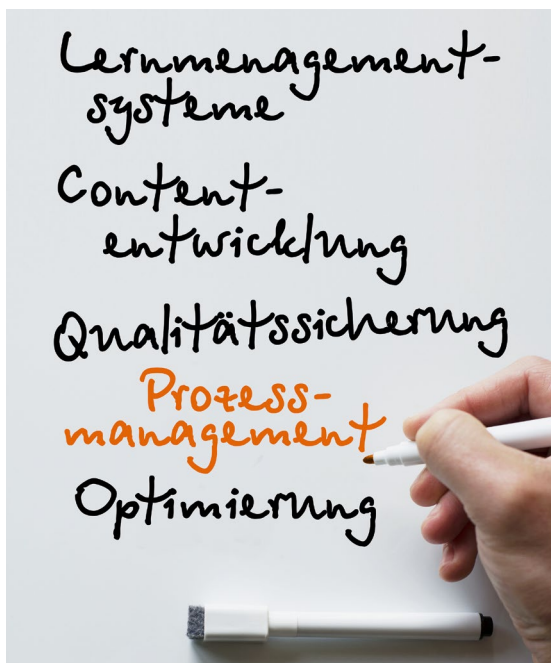 Lernmenagement-
systeme
Content-
entwicklung
Qualitätssicherung
Prozess-
management
Optimierung